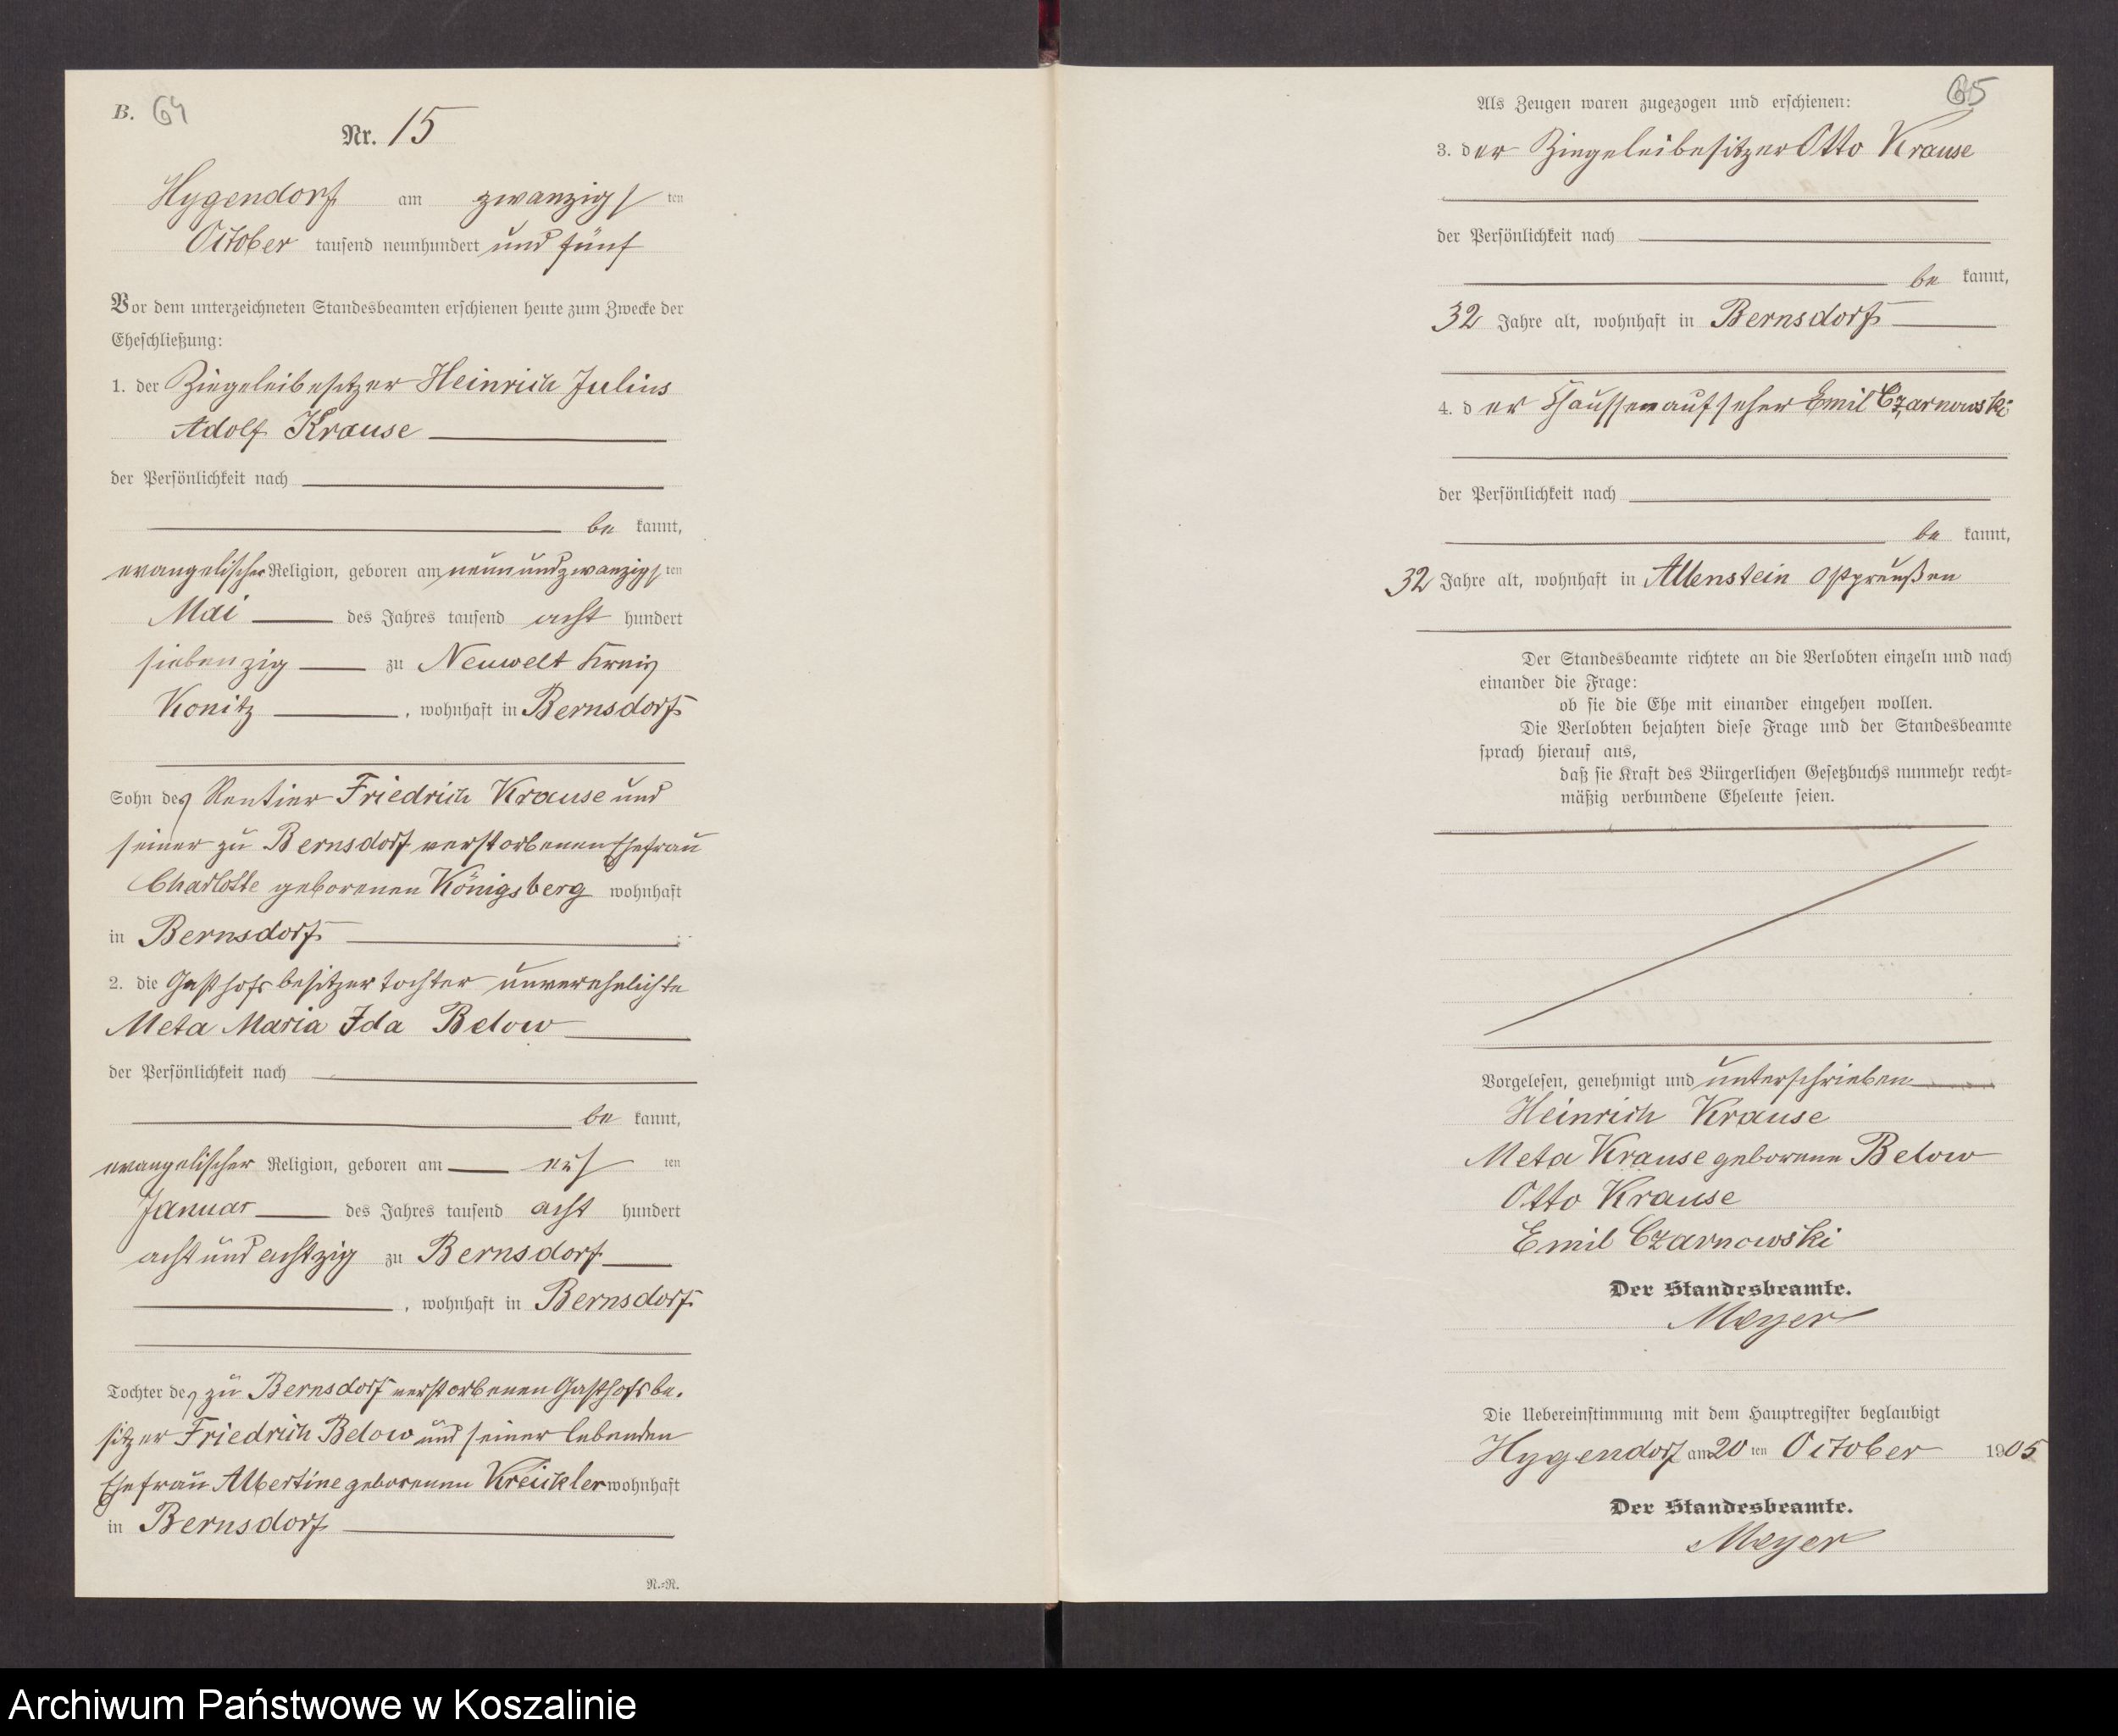 B. 64
Nr. 15
Hygendorf am zwanzigsten
October tausend neunhundert und fünf
Vor dem unterzeichneten Standesbeamten erschienen heute zum Zwecke der
Eheschließung:
1. der Ziegeleibesitzer Heinrich Julius
Adolf Krause
der Persönlichkeit nach
be kannt,
evangelischer Religion, geboren am neunundzwanzigsten
Mai des Jahres tausend acht hundert
siebenzig zu Neuwelt Kreis
Konitz, wohnhaft in Bernsdorf
Sohn des Rentier Friedrich Krause und
seiner zu Bernsdorf verstorbenen Ehefrau
Charlotte geborenen Königsberg wohnhaft
in Bernsdorf
2. die Gasthofsbesitzertochter unverehelichte
Meta Maria Ida Below
der Persönlichkeit nach
be kannt,
evangelischer Religion, geboren am ten
Januar des Jahres tausend acht hundert
acht und achtzig zu Bernsdorf
, wohnhaft in Bernsdorf
Tochter des zu Bernsdorf verstorbenen Gasthofsbe-
sitzer Friedrich Below und seiner lebenden
Ehefrau Albertine geborenen Kreickler wohnhaft
in Bernsdorf
N.=N.
65
Als Zeugen waren zugezogen und erschienen:
3. der Ziegeleibesitzer Otto Krause
der Persönlichkeit nach
be kannt,
32 Jahre alt, wohnhaft in Bernsdorf
4. der Chausseeaufseher Emil Czarnowski
der Persönlichkeit nach
be kannt,
32 Jahre alt, wohnhaft in Allenstein Ostpreußen
Der Standesbeamte richtete an die Verlobten einzeln und nach
einander die Frage:
ob sie die Ehe mit einander eingehen wollen.
Die Verlobten bejahten diese Frage und der Standesbeamte
sprach hierauf aus,
daß sie Kraft des Bürgerlichen Gesetzbuchs nunmehr recht=
mäßig verbundene Eheleute seien.
Vorgelesen, genehmigt und unterschrieben
Heinrich Krause
Meta Krause geborene Below
Otto Krause
Emil Czarnowski
Der Standesbeamte.
Meyer
Die Uebereinstimmung mit dem Hauptregister beglaubigt
Hygendorf am 20 ten October 1905
Der Standesbeamte.
Meyer
Archiwum Państwowe w Koszalinie